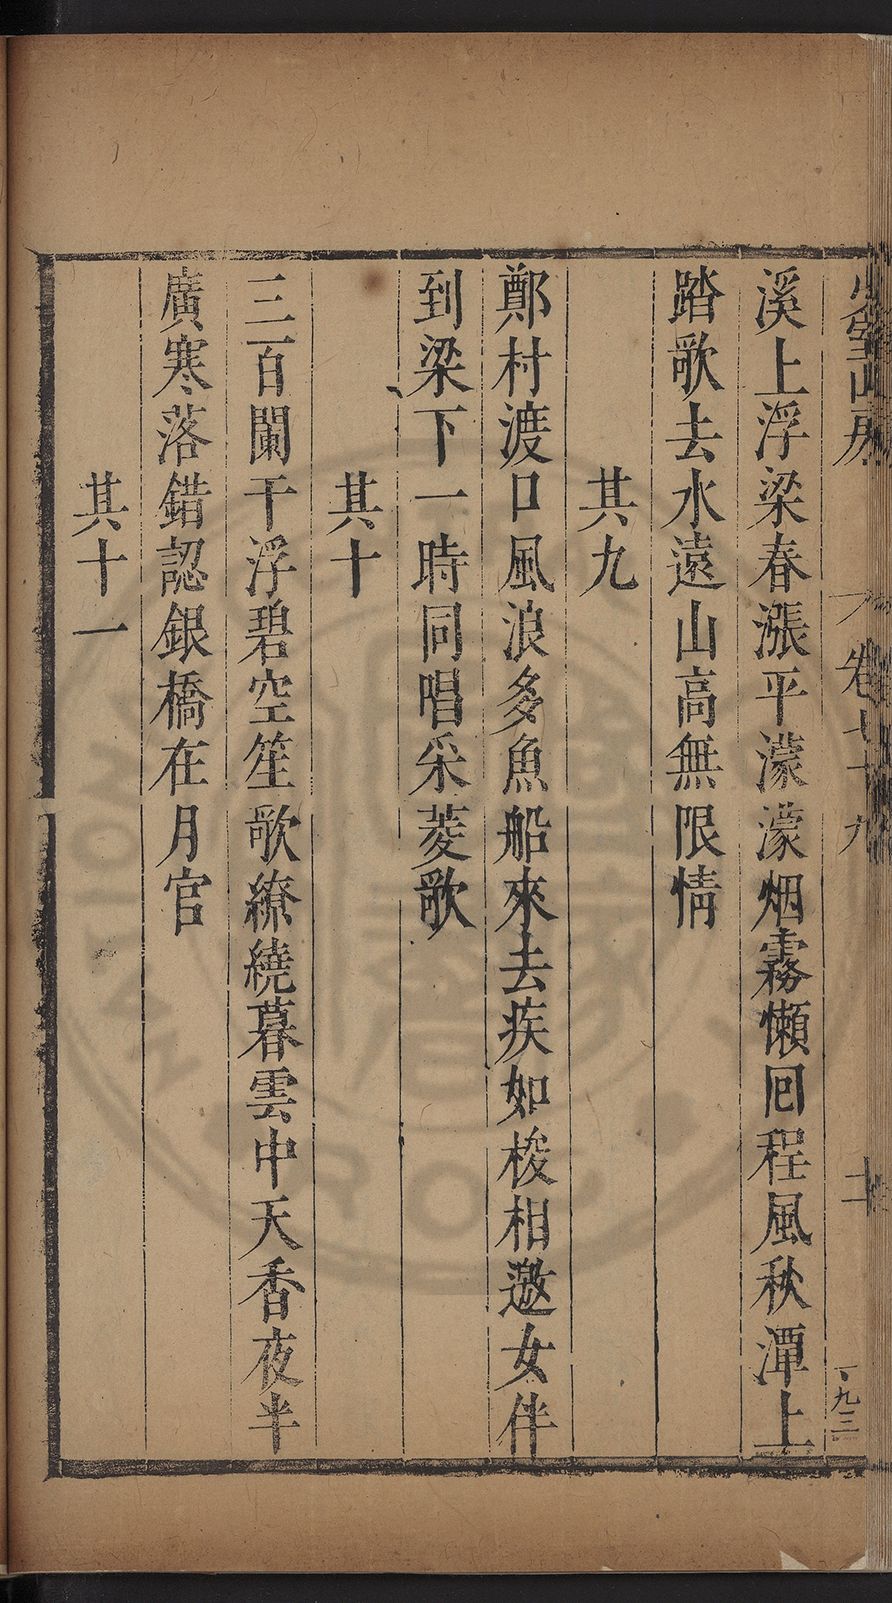 少室山房
卷七十九
二
一九三
溪上浮梁春漲平濛濛烟霧懶囘程風秋潭上
踏歌去水遠山高無限情
其九
鄭村渡口風浪多魚船來去疾如梭相邀女伴
到梁下一時同唱采菱歌
其十
三百闌干浮碧空笙歌繚繞暮雲中天香夜半
廣寒落錯認銀橋在月官
其十一